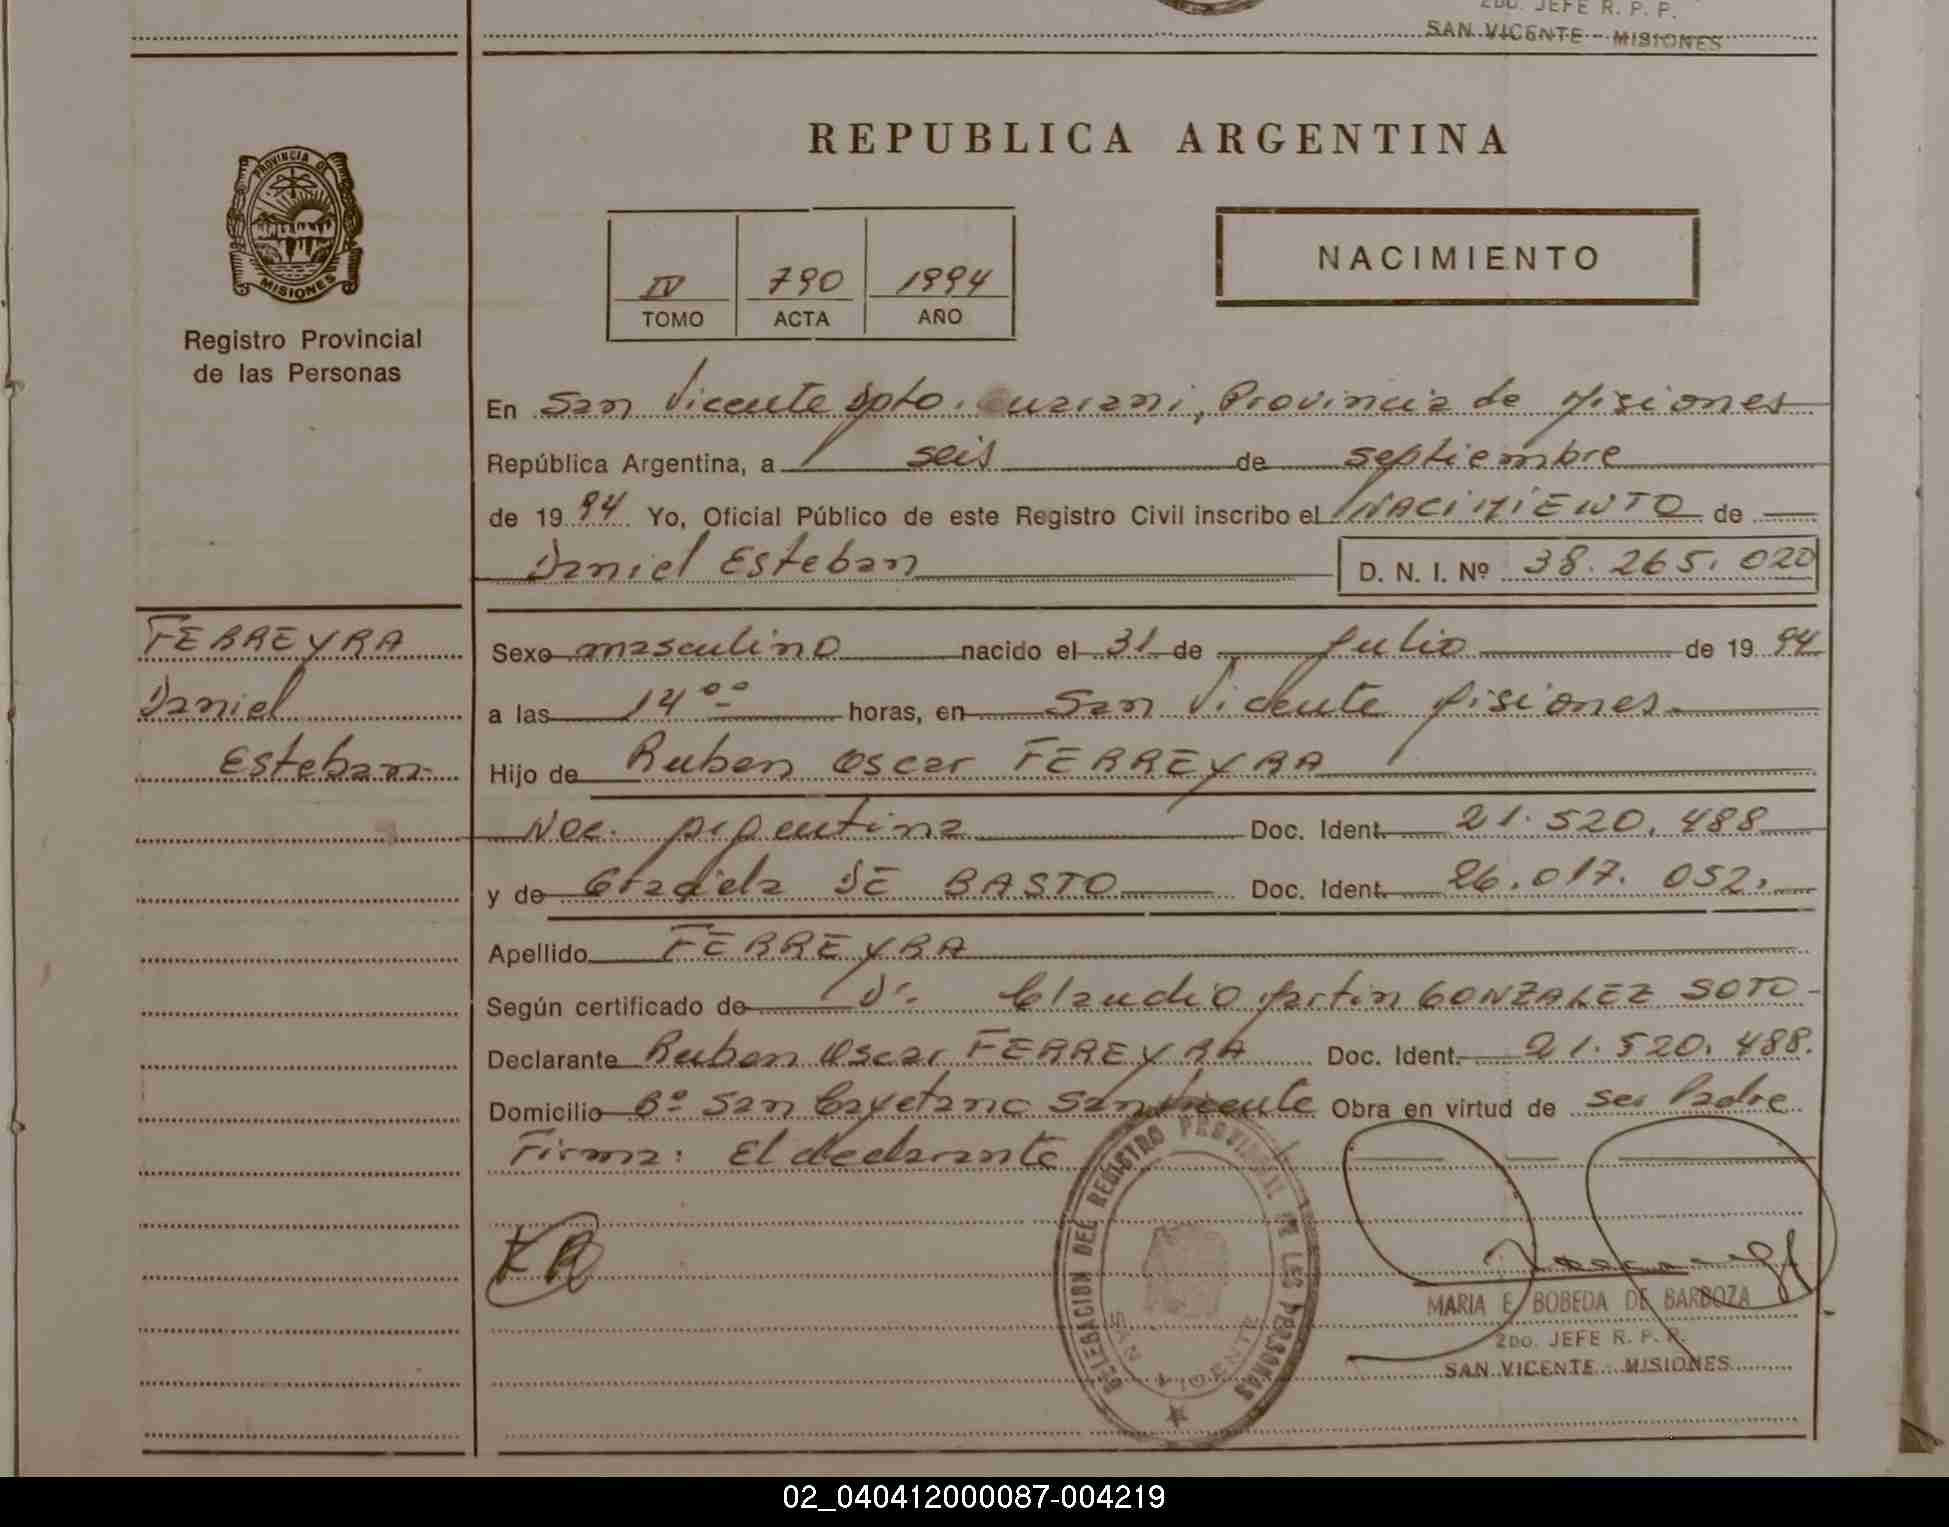 2DO. JEFE R. P. P.
SAN VICENTE - MISIONES
REPUBLICA ARGENTINA
PROVINCIA DE
MISIONES
Registro Provincial
de las Personas
IV 790 1994
TOMO ACTA AÑO
NACIMIENTO
En San Vicente Dpto. Guarani, Provincia de Misiones
República Argentina, a seis de septiembre
de 1994 Yo, Oficial Público de este Registro Civil inscribo el NACIMIENTO de
Daniel Esteban D. N. I. Nº 38.265.020
FERREYRA
Daniel
Esteban
Sexo masculino nacido el 31 de Julio de 1994
a las 14°° horas, en San Vicente Misiones
Hijo de Ruben Oscar FERREYRA
Nac. Argentina Doc. Ident. 21.520.488
y de Graciela DE BASTO Doc. Ident. 26.017.052.
Apellido FERREYRA
Según certificado de Dr. Claudio Martin GONZALEZ SOTO
Declarante Ruben Oscar FERREYRA Doc. Ident. 21.520.488.
Domicilio Bº San Cayetano San Vicente Obra en virtud de ser Padre
Firma: El declarante
DELEGACION DEL REGISTRO PROVINCIAL DE LES PERSONAS
SAN VICENTE
MARIA E. BOBEDA DE BARBOZA
2DO. JEFE R. P. P.
SAN VICENTE - MISIONES
02_040412000087-004219